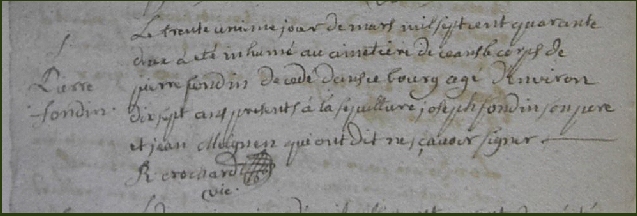 S
Pierre
fondin
Le trente uniesme jour de mars mil sept cent quarante
deux a eté inhumé au cimetiere de ceans le corps de
pierre fondin decedé dans ce bourg agé d'Environ
dix sept ans presents a la sepulture joseph fondin son pere
et jean Moignen qui ont dit ne sçavoir signer
R crochard
vic.